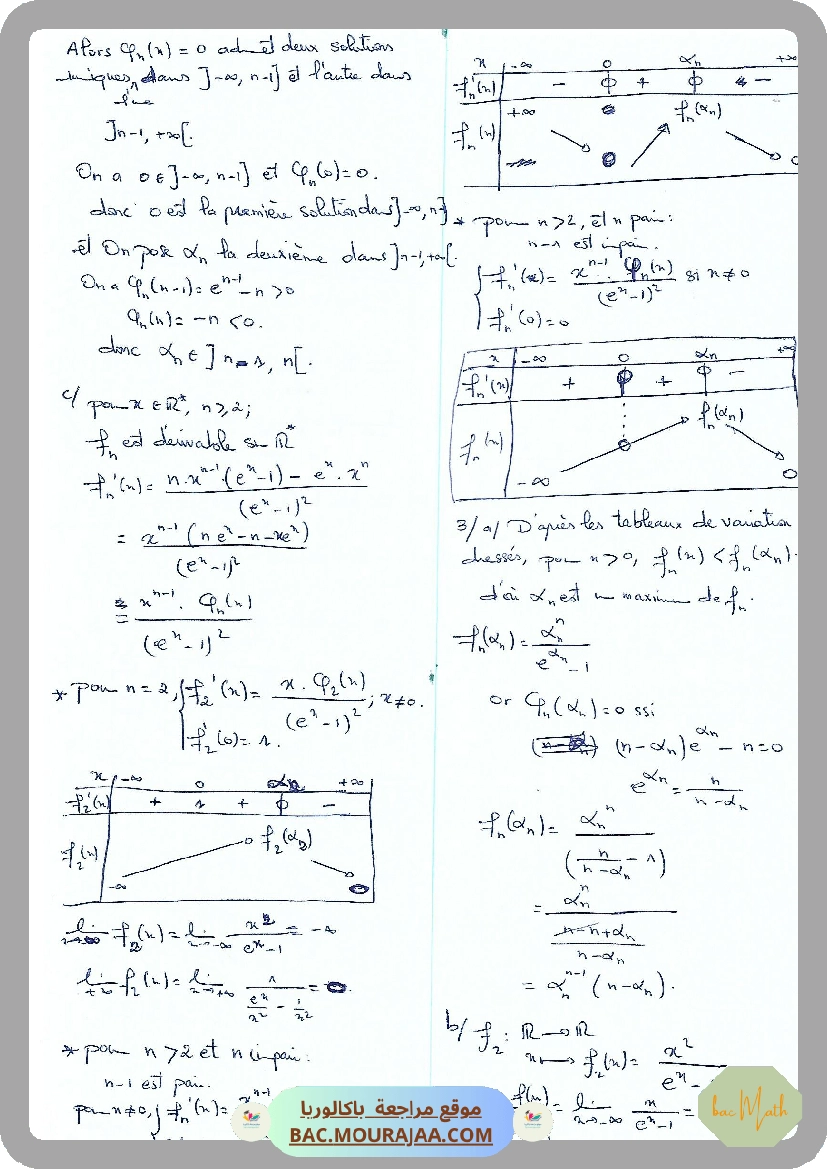 Alors φₙ(x) = 0 admet deux solutions
uniques, l'une dans ]-∞, n-1] et l'autre dans
]n-1, +∞[.
On a 0 ∈ ]-∞, n-1] et φₙ(0) = 0.
donc 0 est la première solution dans ]-∞, n-1]
et On pose αₙ la deuxième dans ]n-1, +∞[.
On a φₙ(n-1) = eⁿ⁻¹ - n > 0
φₙ(n) = -n < 0.
donc αₙ ∈ ]n-1, n[.
c/ pour x ∈ ℝ*, n ≥ 2;
fₙ est dérivable sur ℝ*
fₙ'(x) = n.xⁿ⁻¹.(eˣ-1) - eˣ.xⁿ / (eˣ-1)²
= xⁿ⁻¹(n eˣ - n - xeˣ) / (eˣ-1)²
= xⁿ⁻¹. φₙ(x) / (eˣ-1)²
* pour n = 2, { f₂'(x) = x.φ₂(x) / (eˣ-1)² ; x≠0.
f₂'(0) = 1.
x -∞ 0 α₂ +∞
f₂'(x) + 1 + ϕ -
f₂(x) -∞ 0 f₂(α₂) 0
lim f₂(x) = lim x→-∞ x² / eˣ-1 = -∞
lim +∞ f₂(x) = lim x→+∞ 1 / (eˣ/x² - 1/x²) = 0.
* pour n > 2 et n impair:
n-1 est pair.
pour x≠0, { fₙ'(x) = xⁿ⁻¹
x -∞ 0 αₙ +∞
fₙ'(x) - ϕ + ϕ -
fₙ(x) +∞ 0 fₙ(αₙ) 0
* pour n>2, et n pair:
n-1 est impair.
{ fₙ'(x) = xⁿ⁻¹. φₙ(x) / (eˣ-1)² si x≠0
fₙ'(0) = 0
x -∞ 0 αₙ +∞
fₙ'(x) + ϕ + ϕ -
fₙ(x) -∞ 0 fₙ(αₙ) 0
3/ a/ D'après les tableaux de variation
dressés, pour x>0, fₙ(x) < fₙ(αₙ).
d'où αₙ est un maximum de fₙ.
fₙ(αₙ) = αₙⁿ / e^αₙ - 1
or φₙ(αₙ) = 0 ssi
(n-αₙ)e^αₙ - n = 0
e^αₙ = n / n-αₙ
fₙ(αₙ) = αₙⁿ / (n/(n-αₙ) - 1)
= αₙⁿ / ((n-n+αₙ)/(n-αₙ))
= αₙⁿ⁻¹(n-αₙ).
b/ f₂ : ℝ → ℝ
x ↦ f₂(x) = x² / eˣ-
f(x) = lim x→-∞ x / eˣ-1 =
موقع مراجعة باكالوريا
BAC.MOURAJAA.COM
bac Math